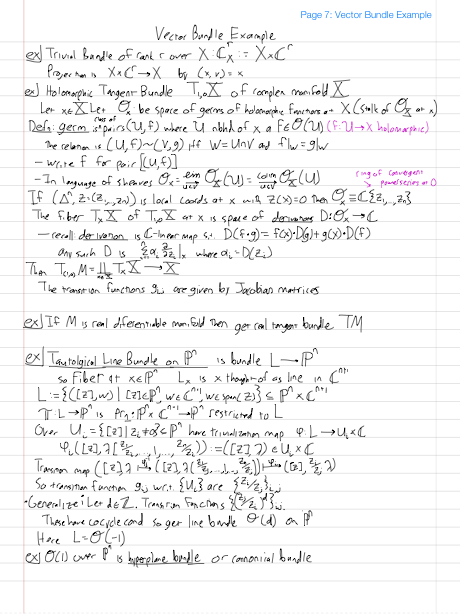 Page 7: Vector Bundle Example
Vector Bundle Example
ex] Trivial Bundle of rank r over X: ℂ_X^r := X×ℂ^r
Projection is X×ℂ^r → X by (x,v) = x
ex] Holomorphic Tangent Bundle T_{1,0}X of complex manifold X
Let x∈X Let O_x be space of germs of holomorphic functions at X (stalk of O_X at x)
Defn: germ is class of pairs (U,f) where U nbhd of x a f∈O(U) (f:U→X holomorphic)
The relation is (U,f)~(V,g) iff W=U∩V and f|_W = g|_W
- write f for pair [(U,f)]
- In language of sheaves O_x = lim_{U∋x} O_X(U) = colim_{U∋x} O_X(U)
ring of convergent power series at 0
If (Δ^n, z=(z_1,...,z_n)) is local coords at x with z(x)=0 then O_x ≅ ℂ{z_1,...,z_n}
The fiber T_xX of T_{1,0}X at x is space of derivations D: O_x→ℂ
- recall derivation is ℂ-linear map s.t. D(f·g) = f(x)·D(g)+g(x)·D(f)
any such D is Σ a_i ∂/∂z_i |_x where a_i = D(z_i)
Then T_{(1,0)}M = ∐_{x∈X} T_xX → X
The transition functions g_ij are given by Jacobian matrices
ex] If M is real differentiable manifold then get real tangent bundle TM
ex] Tautolgical Line Bundle on ℙ^n is bundle L→ℙ^n
so Fiber at x∈ℙ^n L_x is x thought of as line in ℂ^{n+1}
L := {([z],w) | [z]∈ℙ^n, w∈ℂ^{n+1}, w∈span(z)} ⊆ ℙ^n×ℂ^{n+1}
π: L→ℙ^n is pr_1: ℙ^n×ℂ^{n+1}→ℙ^n restricted to L
Over U_i = {[z] | z_i≠0}⊆ℙ^n have trivialization map φ: L→U_i×ℂ
φ_i([z], λ(z_1/z_i,...,1,...,z_n/z_i)) := ([z],λ) ∈ U_i×ℂ
Transition map ([z],λ) ↦ ([z],λ(z_0/z_i,...,1,...,z_n/z_i)) ↦ ([z], z_j/z_i λ)
So transition function g_ij w.r.t. {U_i} are {z_i/z_j}_{i,j}
·Generalize: Let d∈ℤ. Transition Functions {(z_j/z_i)^d}_{i,j}
These have cocycle cond so get line bundle O(d) on ℙ^n
Here L = O(-1)
ex] O(1) over ℙ^n is hyperplane bundle or canonical bundle